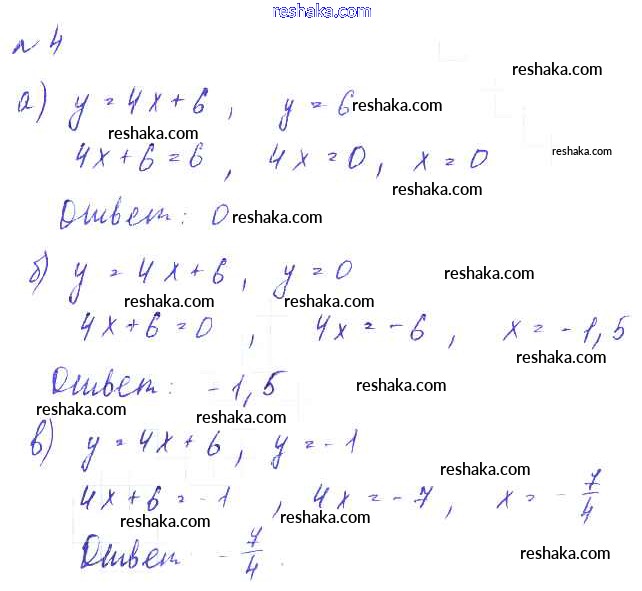 reshaka.com
№ 4
reshaka.com
а) y = 4x + 6 , y = 6 reshaka.com
reshaka.com
reshaka.com
4x + 6 = 6 , 4x = 0 , x = 0
reshaka.com
Ответ: 0 reshaka.com
б) y = 4x + 6 , y = 0 reshaka.com
reshaka.com reshaka.com
4x + 6 = 0 , 4x = -6 , x = -1,5
reshaka.com
Ответ: -1,5 reshaka.com
reshaka.com reshaka.com
в) y = 4x + 6 , y = -1
reshaka.com
4x + 6 = -1 , 4x = -7 , x = -7/4
reshaka.com reshaka.com
Ответ -7/4 .
reshaka.com